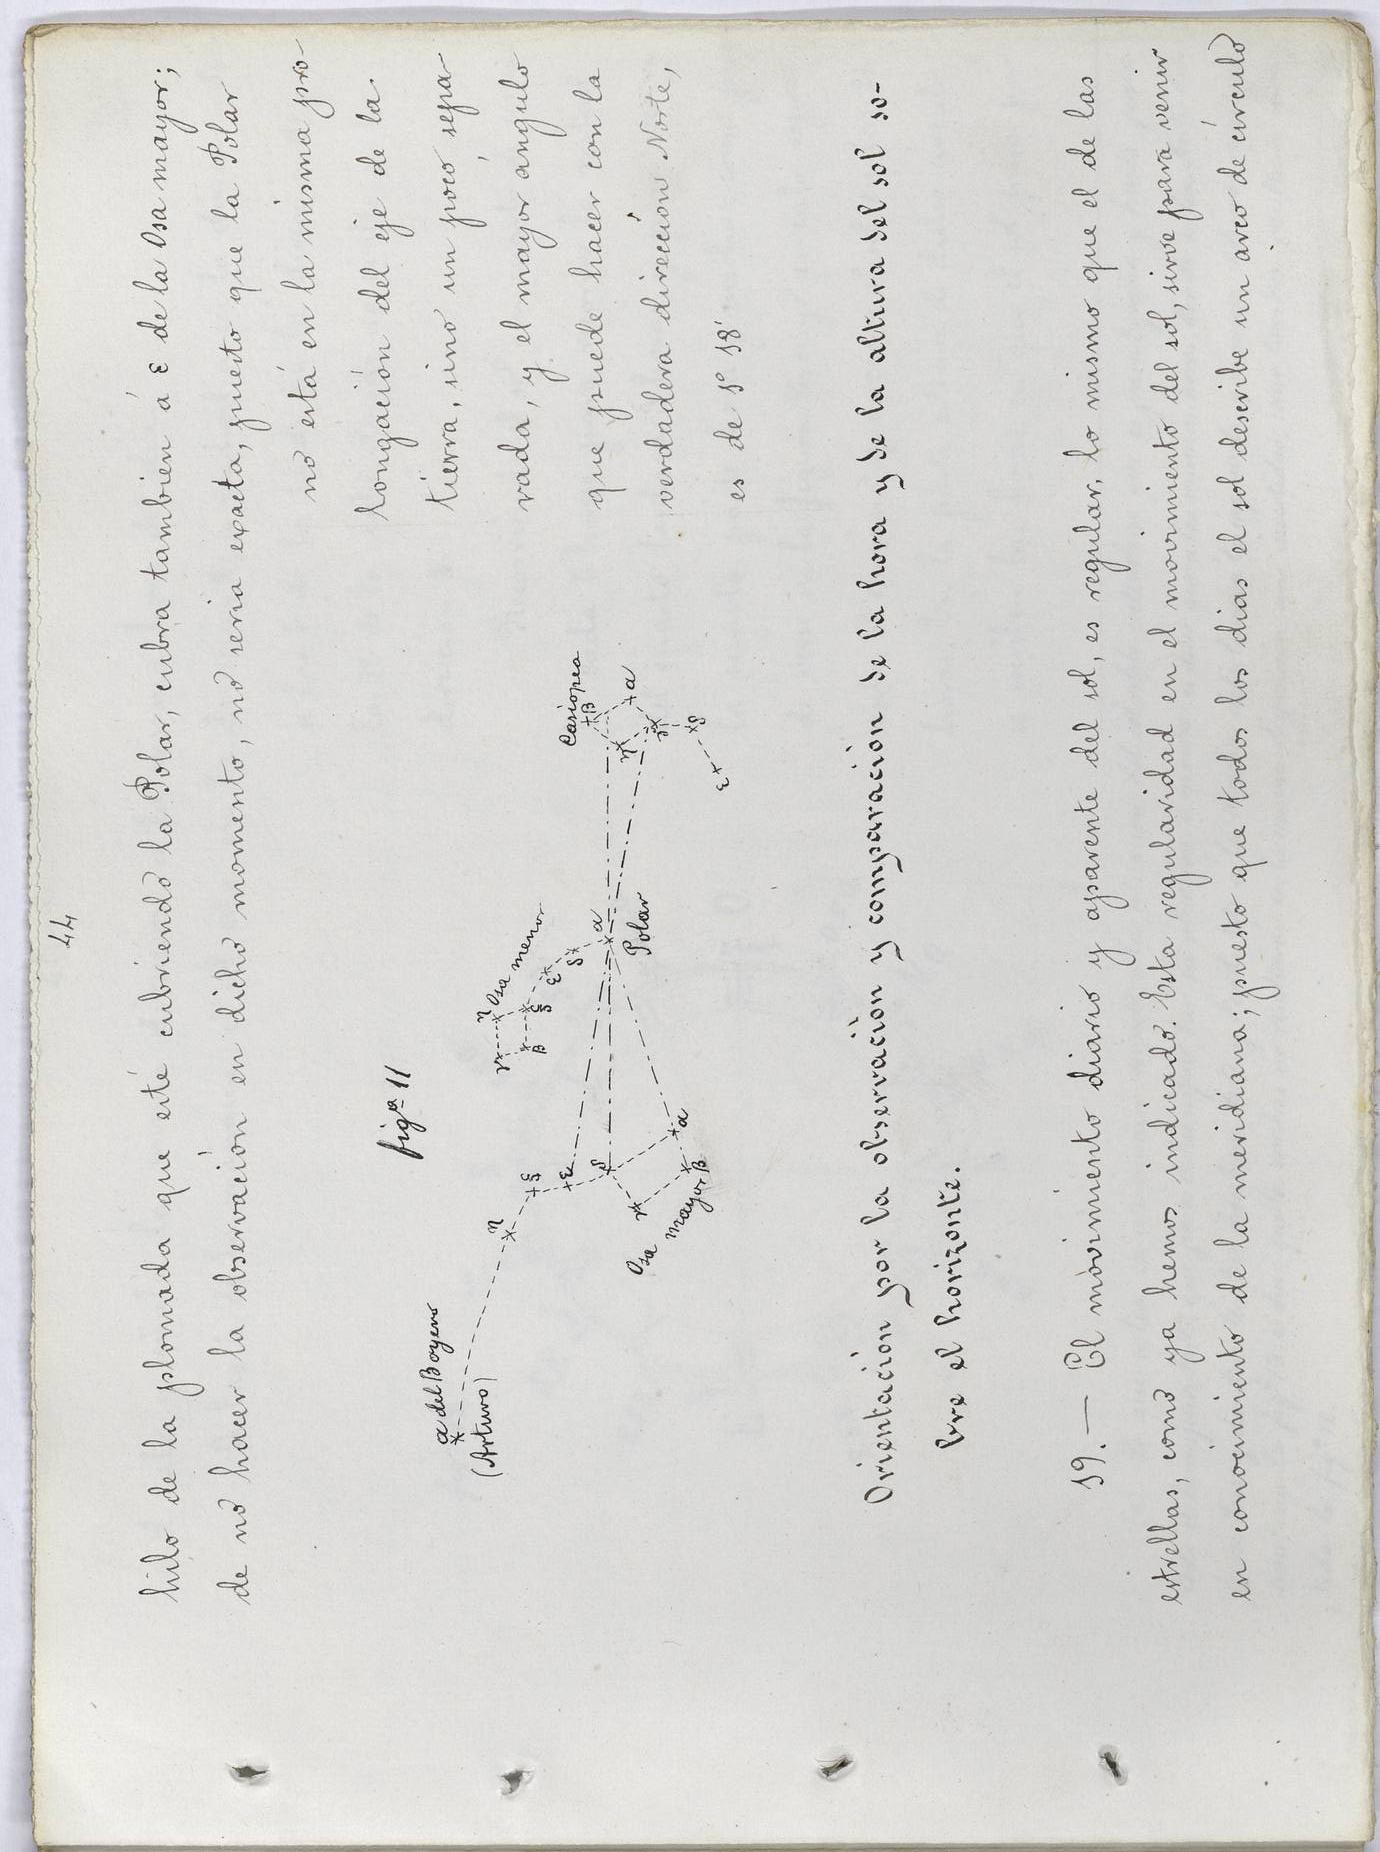 44
hilo de la plomada que esté cubriendo la Polar, cubra tambien á ε de la Osa mayor;
de no hacer la observación en dicho momento, no seria exacta, puesto que la Polar
no está en la misma pro-
longación del eje de la
tierra, sino un poco sepa-
rada, y el mayor angulo
que puede hacer con la
verdadera dirección Norte,
es de 1º 18'
figª 11
α del Boyero
(Arturo)
η
ξ
ε
δ
γ
β
α
Osa mayor
Osa menor
γ
η
β
ξ
ε
δ
α
Polar
Casiopea
β
α
η
γ
δ
ε
Orientación por la observación y comparación de la hora y de la altura del sol so-
bre el horizonte.
19.— El movimiento diario y aparente del sol, es regular, lo mismo que el de las
estrellas, como ya hemos indicado. Esta regularidad en el movimiento del sol, sirve para venir
en conocimiento de la meridiana; puesto que todos los dias el sol describe un arco de círculo